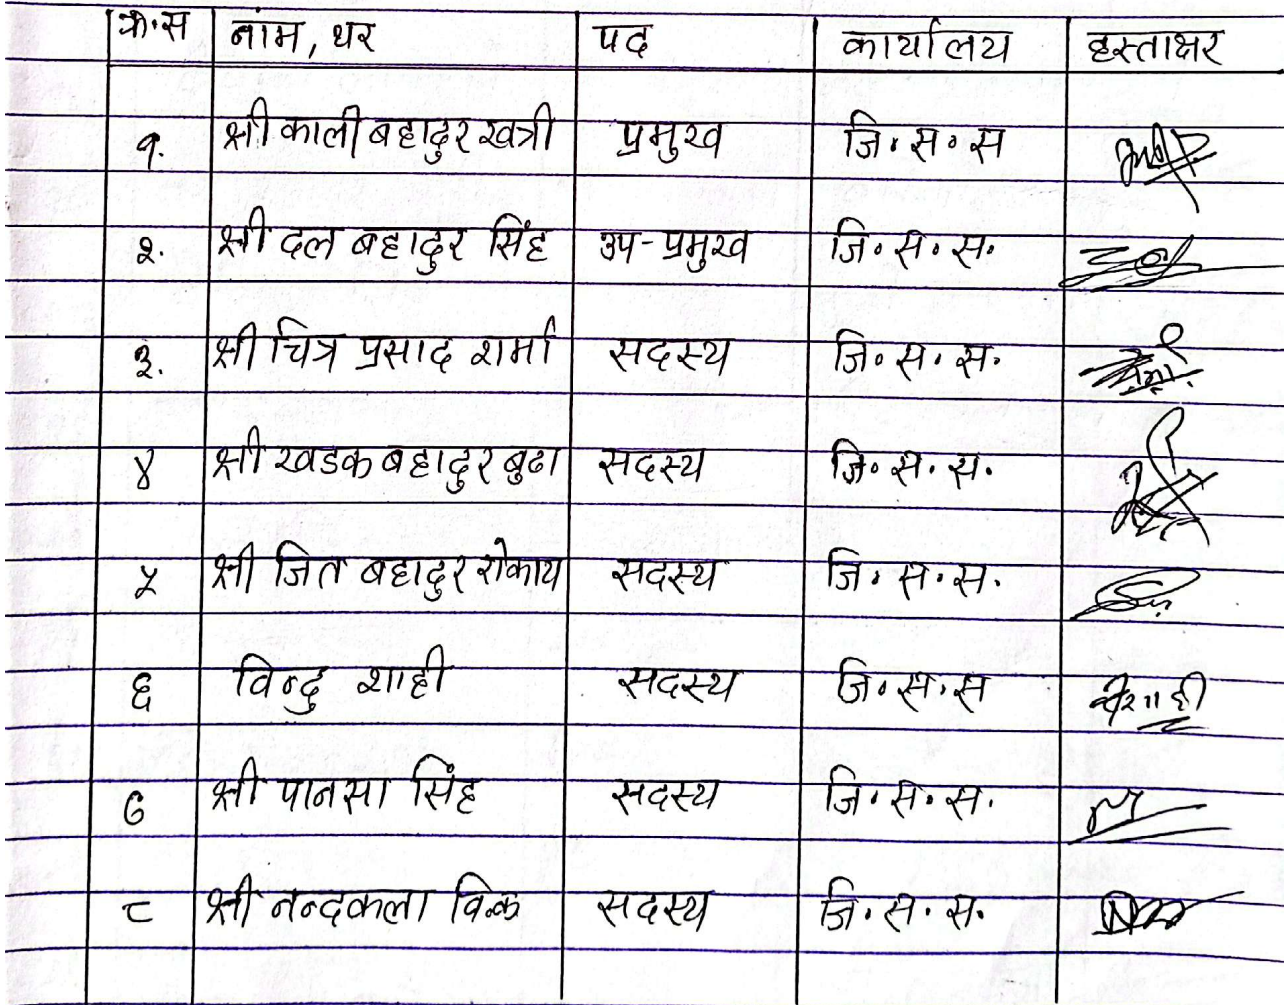 क्र.स नाम, थर पद कार्यालय हस्ताक्षर
१. श्री काली बहादुर खत्री प्रमुख जि.स.स
२. श्री दल बहादुर सिंह उप-प्रमुख जि.स.स.
३. श्री चित्र प्रसाद शर्मा सदस्य जि.स.स.
४ श्री खडक बहादुर बुढा सदस्य जि.स.स.
५ श्री जित बहादुर रोकाय सदस्य जि.स.स.
६ विन्दु शाही सदस्य जि.स.स
७ श्री पानसा सिंह सदस्य जि.स.स.
८ श्री नन्दकला वि.क सदस्य जि.स.स.